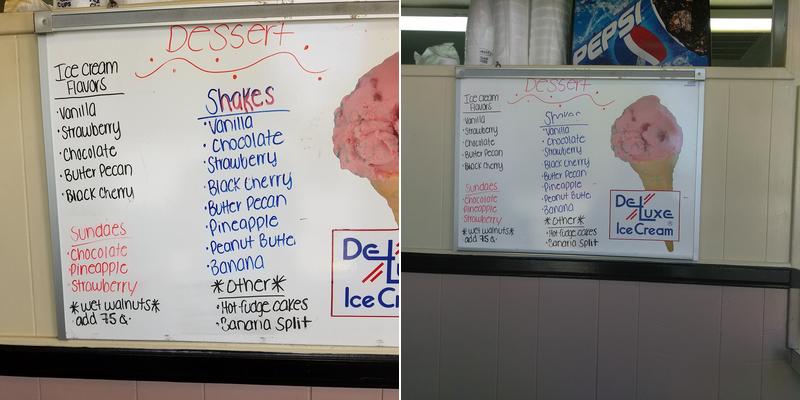 CUPS
Dessert
Ice Cream
Flavors
•Vanilla
•Strawberry
•Chocolate
•Butter Pecan
•Black Cherry
Sundaes
•Chocolate
•Pineapple
•Strawberry
*wet walnuts*
add 75¢.
Shakes
•Vanilla
•Chocolate
•Strawberry
•Black Cherry
•Butter Pecan
•Pineapple
•Peanut Butte
•Banana
*Other*
•Hot fudge cakes
•Banana Split
De
L
Ice Cr
PEPSI
Dessert
Ice Cream
Flavors
Vanilla
•Strawberry
•Chocolate
•Butter Pecan
•Black Cherry
Sundaes
•Chocolate
•Pineapple
•Strawberry
*wet walnuts*
add 75¢
Shakes
•Vanilla
•Chocolate
•Strawberry
•Black Cherry
•Butter Pecan
•Pineapple
•Peanut Butte
•Banana
*Other*
•Hot fudge cakes
•Banana Split
DeLuxe
®
Ice Cream